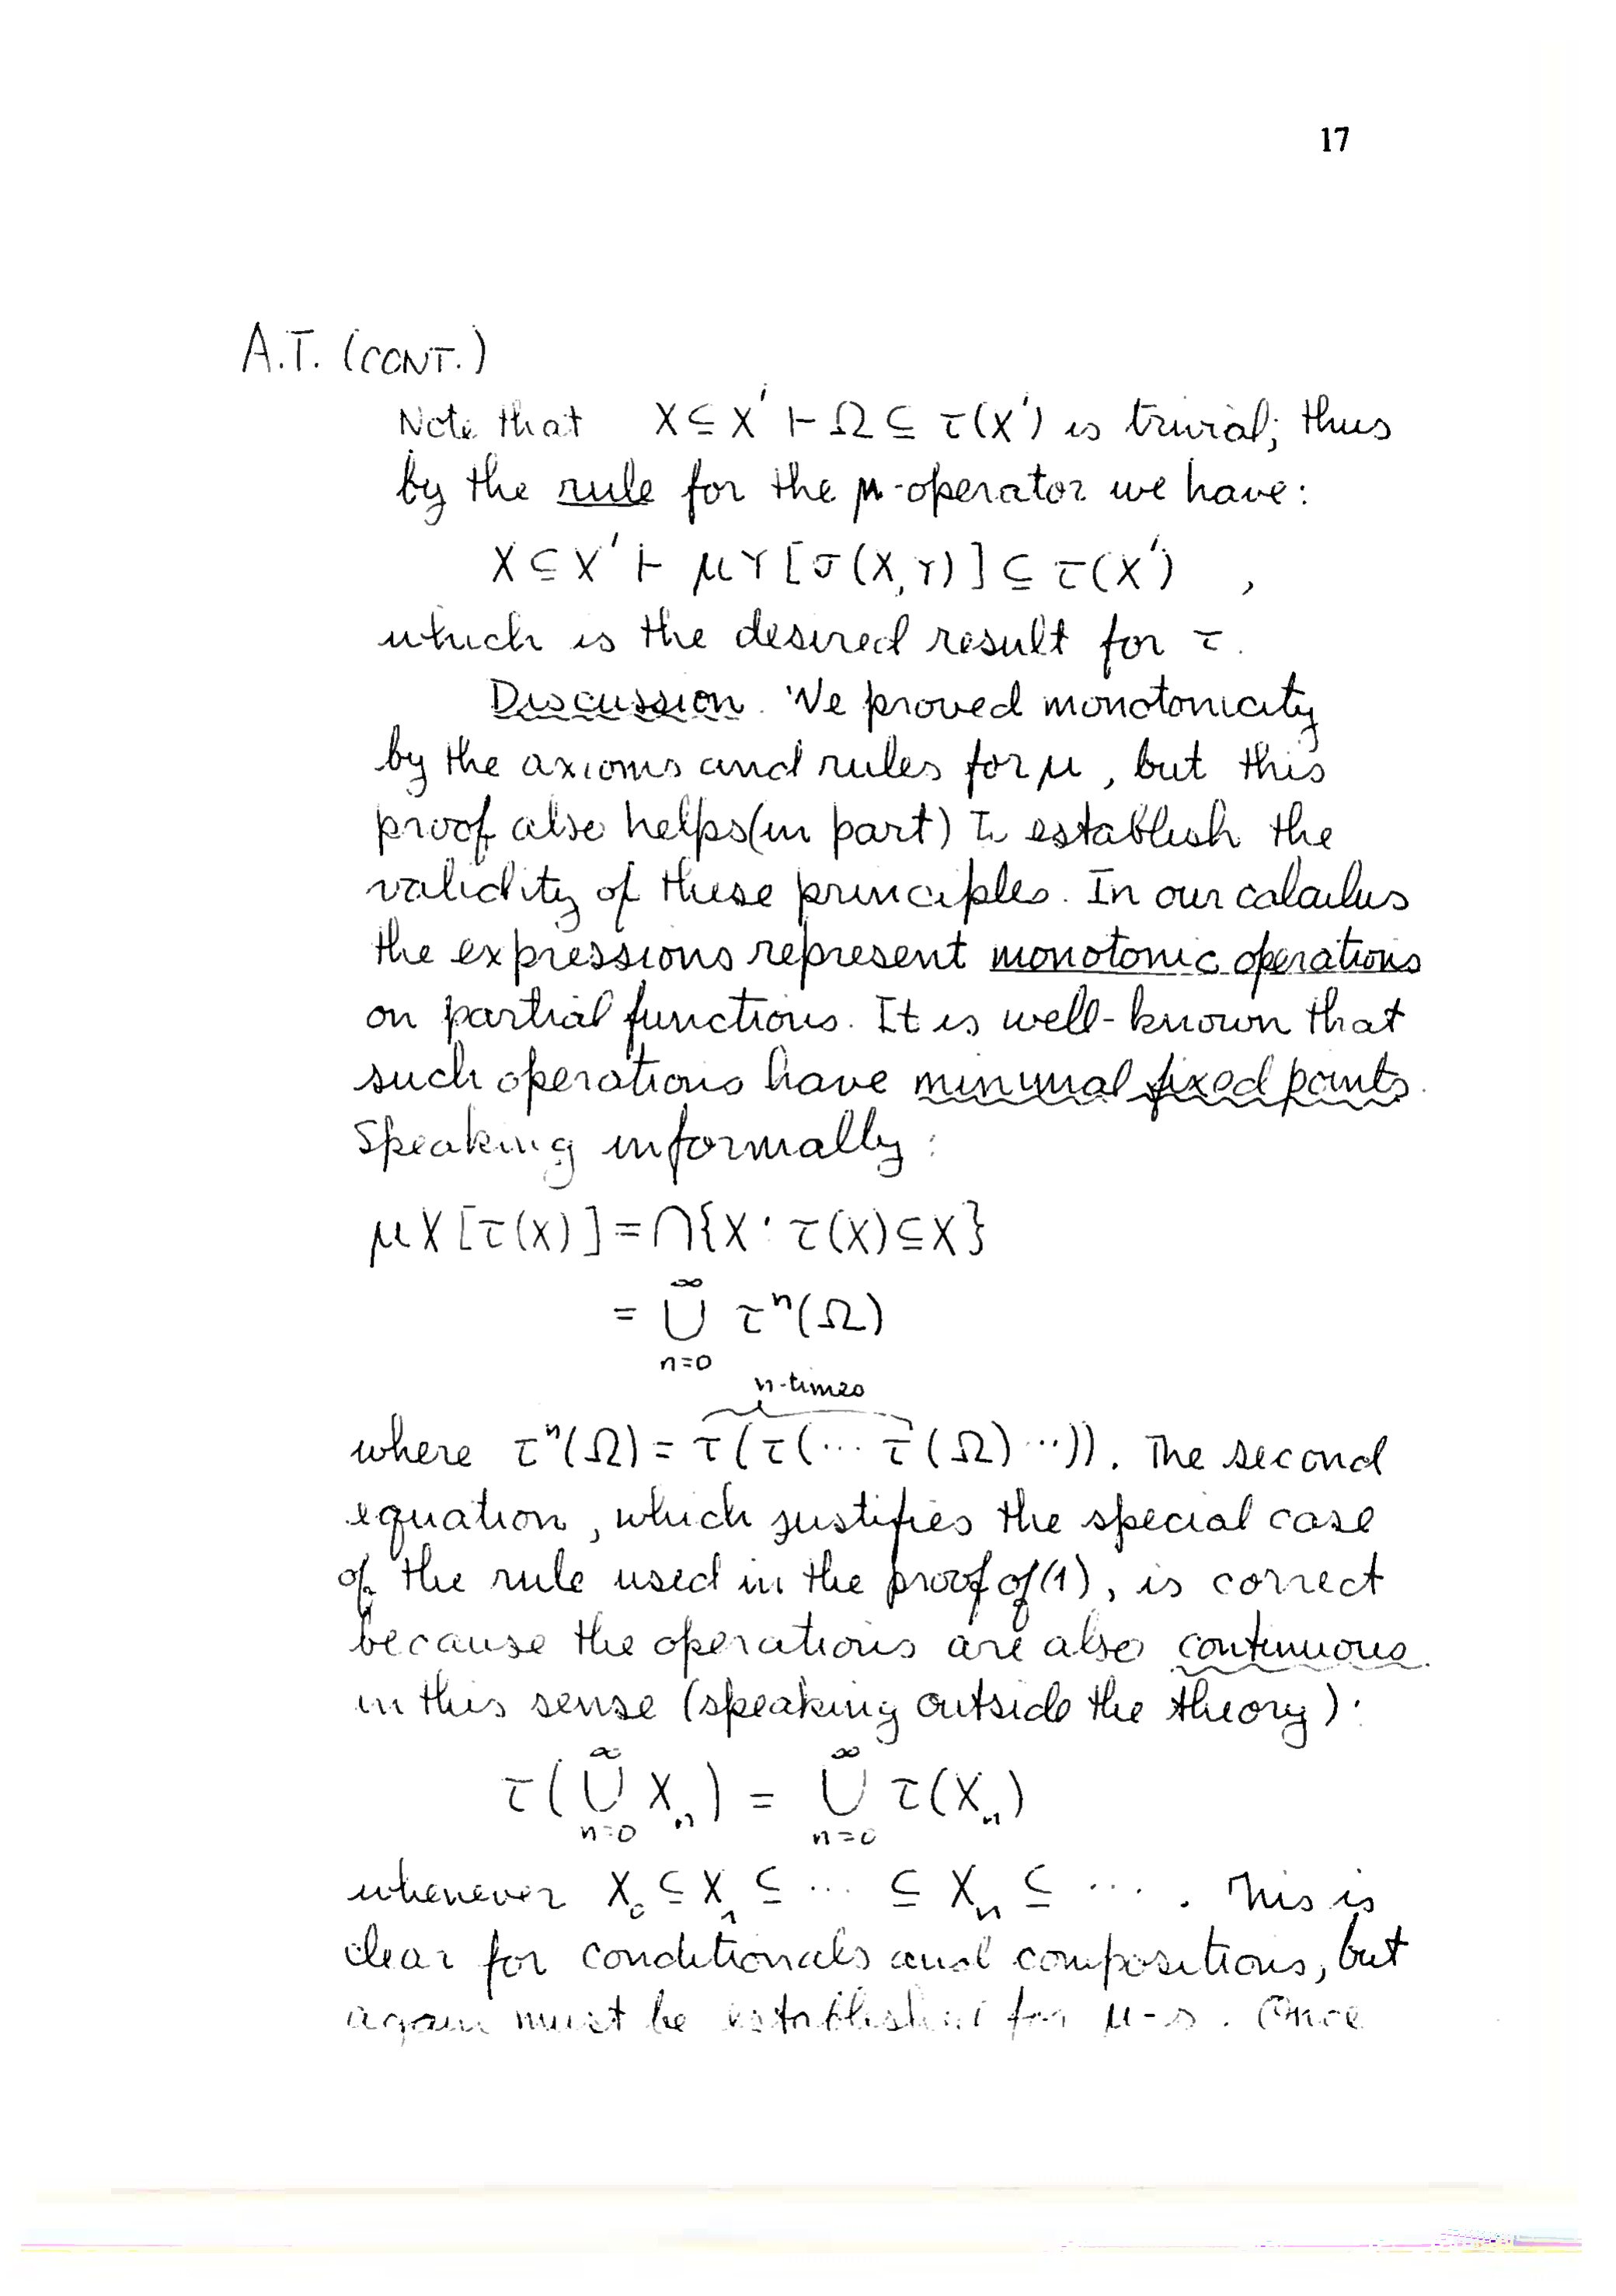 17
A.T. (CONT.)
Note that X ⊆ X' ⊢ Ω ⊆ τ(X') is trivial; thus
by the rule for the μ-operator we have:
X ⊆ X' ⊢ μY[σ(X,Y)] ⊆ τ(X') ,
which is the desired result for τ.
Discussion. We proved monotonicity
by the axioms and rules for μ, but this
proof also helps (in part) to establish the
validity of these principles. In our calculus
the expressions represent monotonic operations
on partial functions. It is well-known that
such operations have minimal fixed points.
Speaking informally:
μX[τ(X)] = ⋂{X : τ(X) ⊆ X}
∞
= ⋃ τⁿ(Ω)
n=0
n-times
where τⁿ(Ω) = τ(τ(⋯ τ(Ω) ⋯)). The second
equation, which justifies the special case
of the rule used in the proof of (1), is correct
because the operations are also continuous
in this sense (speaking outside the theory):
∞ ∞
τ(⋃ Xₙ) = ⋃ τ(Xₙ)
n=0 n=0
whenever X₀ ⊆ X₁ ⊆ ⋯ ⊆ Xₙ ⊆ ⋯ . This is
clear for conditionals and compositions, but
again must be established for μ-s. Once